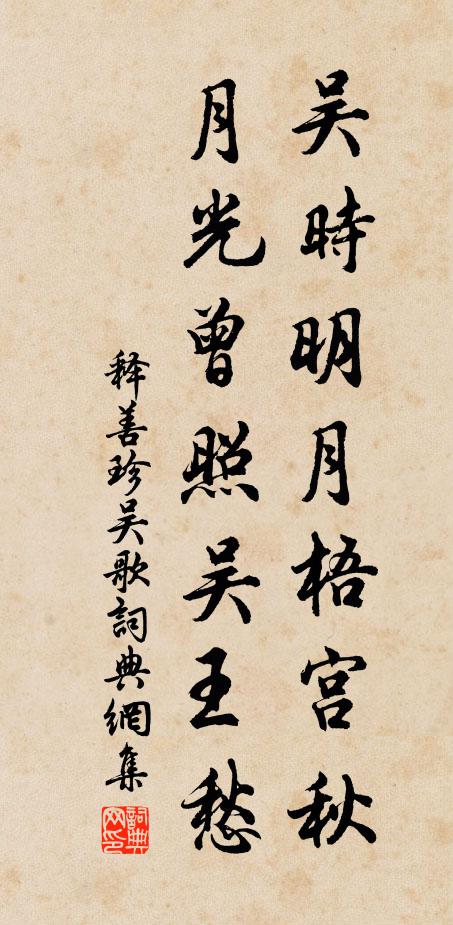 吴時明月梧宫秋
月光曾照吴王愁
释善珍吴歌詞典網集
詞典网印